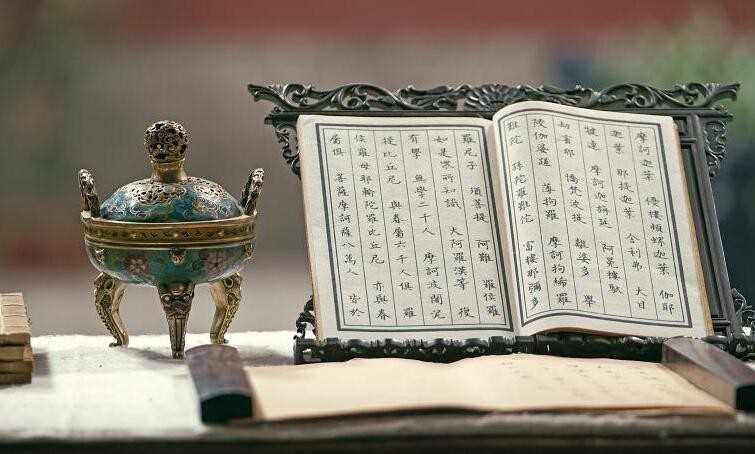 摩訶迦葉 優樓頻螺迦葉 伽耶
迦葉 那提迦葉 舍利弗 大目
犍連 摩訶迦旃延 阿㝹樓馱
劫賓那 憍梵波提 離婆多 畢
陵伽婆蹉 薄拘羅 摩訶拘絺羅
難陀 孫陀羅難陀 富樓那彌多
羅尼子 須菩提 阿難 羅睺羅
如是眾所知識 大阿羅漢等 復
有學 無學二千人 摩訶波闍波
提比丘尼 與眷屬六千人俱 羅
睺羅母耶輸陀羅比丘尼 亦與眷
屬俱 菩薩摩訶薩八萬人 皆於